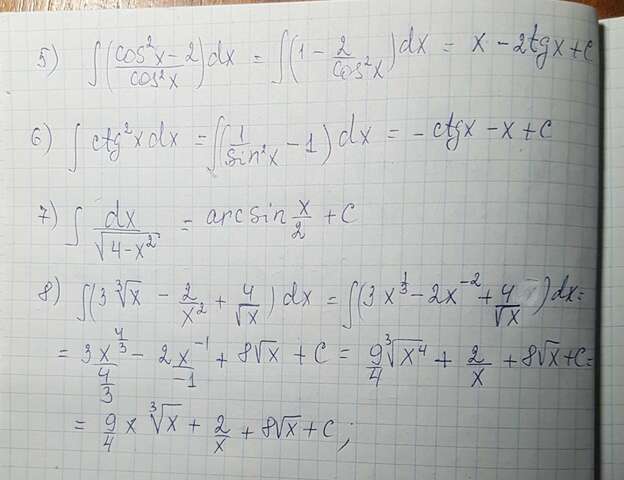 5) ∫(cos²x-2/cos²x)dx = ∫(1 - 2/cos²x)dx = x - 2tgx + C
6) ∫ctg²xdx = ∫(1/sin²x - 1)dx = -ctgx - x + C
7) ∫dx/√(4-x²) = arcsin x/2 + C
8) ∫(3∛x - 2/x² + 4/√x)dx = ∫(3x^(1/3) - 2x^(-2) + 4/√x)dx =
= 3x^(4/3)/(4/3) - 2x^(-1)/(-1) + 8√x + C = 9/4 ∛(x⁴) + 2/x + 8√x + C =
= 9/4 x ∛x + 2/x + 8√x + C ;